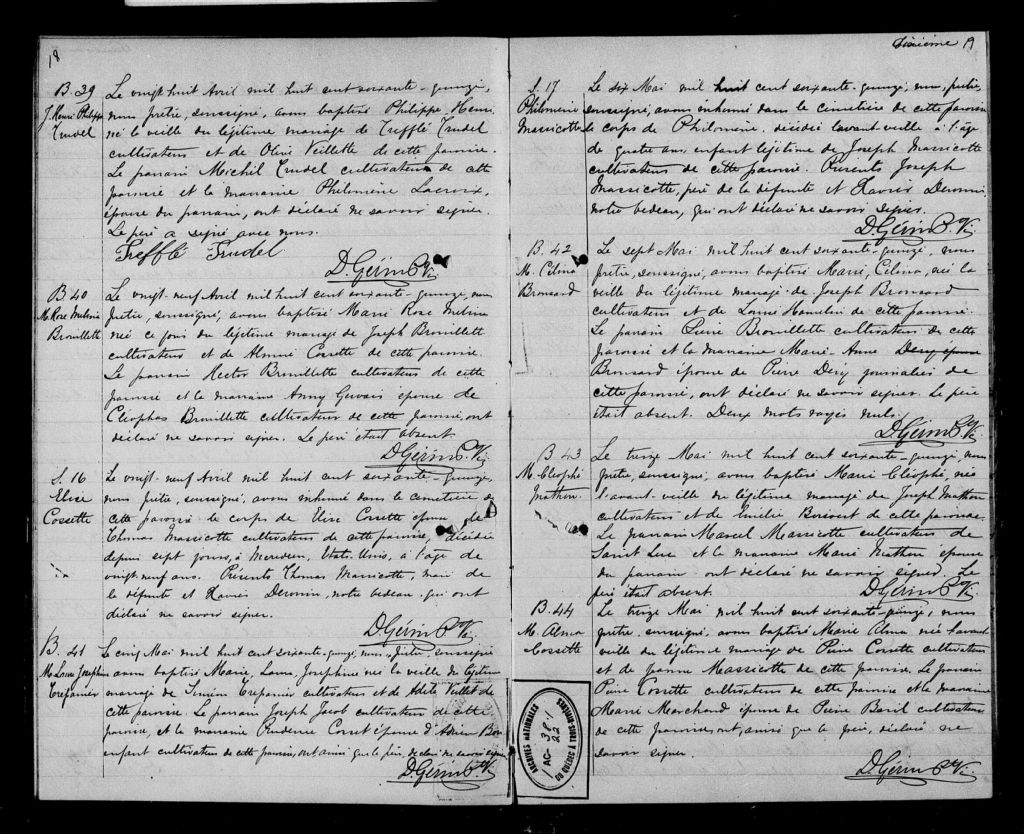 18
B. 39
J. Henri Philippe
Trudel
Le vingt huit Avril mil huit cent soixante-quinze,
nous prêtre, soussigné, avons baptisé Philippe, Henri
né la veille du légitime mariage de Trefflé Trudel
cultivateur et de Olive Veillette de cette paroisse.
Le parrain Michel Trudel cultivateur de cette
paroisse et la marraine Philomène Lacroix,
épouse du parrain, ont déclaré ne savoir signer.
Le père a signé avec nous.
Trefflé Trudel
D. Gérin Ptre Vic
B. 40
M. Rose Melina
Brouillette
Le vingt-neuf Avril mil huit cent soixante-quinze, nous
prêtre, soussigné, avons baptisé Marie Rose Melina
née ce jour du légitime mariage de Joseph Brouillette
cultivateur et de Cossette de cette paroisse.
Le parrain Hector Brouillette cultivateur de cette
paroisse et la marraine Anny Gervais épouse de
Cléophas Brouillette cultivateur de cette paroisse, ont
déclaré ne savoir signer. Le père était absent.
D. Gérin Ptre Vic
S. 16
Elise
Cossette
Le vingt-neuf Avril mil huit cent soixante-quinze,
nous prêtre, soussigné, avons inhumé dans le cimetière de
cette paroisse le corps de Elise Cossette épouse de
Thomas Massicotte cultivateur de cette paroisse, décédée
depuis sept jours, à Meriden, Etats-Unis, à l'âge de
vingt neuf ans. Présents Thomas Massicotte, mari de
la défunte et Xavier Deronin, notre bedeau, qui ont
déclaré ne savoir signer.
D. Gérin Ptre Vic
B. 41
M. Laura Josephine
Trépanier
Le cinq Mai mil huit cent soixante-quinze, nous, prêtre, soussigné
avons baptisé Marie, Laura, Josephine née la veille du légitime
mariage de Siméon Trépanier cultivateur et de Adele Veillet de
cette paroisse. Le parrain Joseph Jacob cultivateur de cette
paroisse, et la marraine Prudence Cossette épouse d'Adrien Bon
enfant cultivateur de cette paroisse, ont ainsi que le père, déclaré ne savoir signer
D. Gérin Ptre Vic
Sixième 19
S. 17
Philomène
Massicotte
Le six Mai mil huit cent soixante-quinze, nous, prêtre,
soussigné, avons inhumé dans le cimetière de cette paroisse
le corps de Philomène, décédée l'avant-veille à l'âge
de quatre ans, enfant légitime de Joseph Massicotte
cultivateur de cette paroisse. Présents Joseph
Massicotte, père de la défunte et Xavier Deronin
notre bedeau, qui ont déclaré ne savoir signer.
D. Gérin Ptre Vic
B. 42
M. Célina
Bronsard
Le sept Mai mil huit cent soixante-quinze, nous
prêtre, soussigné, avons baptisé Marie, Célina, née la
veille du légitime mariage de Joseph Bronsard
cultivateur et de Hamelin de cette paroisse.
Le parrain Pierre Brouillette cultivateur de cette
paroisse et la marraine Marie-Anne Dery épouse
Bronsard épouse de Pierre Dery journalier de
cette paroisse, ont déclaré ne savoir signer. Le père
était absent. Deux mots rayés nuls.
D. Gérin Ptre Vic
B. 43
M. Cléophé
Mathon
Le treize Mai mil huit cent soixante-quinze, nous
prêtre, soussigné, avons baptisé Marie-Cléophé née
l'avant-veille du légitime mariage de Joseph Mathon
cultivateur et de Emilie Boisvert de cette paroisse.
Le parrain Marcel Massicotte cultivateur de
Saint Luc et la marraine Marie Mathon épouse
du parrain ont déclaré ne savoir signer. Le
père était absent.
D. Gérin Ptre Vic
B. 44
M. Alma
Cossette
Le treize Mai mil huit cent soixante-quinze, nous
prêtre, soussigné, avons baptisé Marie Alma née l'avant
veille du légitime mariage de Pierre Cossette cultivateur
et de Massicotte de cette paroisse. Le parrain
Pierre Cossette cultivateur de cette paroisse et la marraine
Marie Marchand épouse de Pierre Baril cultivateur
de cette paroisse, ont, ainsi que le père, déclaré ne
savoir signer
D. Gérin Ptre Vic
ARCHIVES NATIONALES
AC-38-1
22
DU QUÉBEC À TROIS-RIVIÈRES